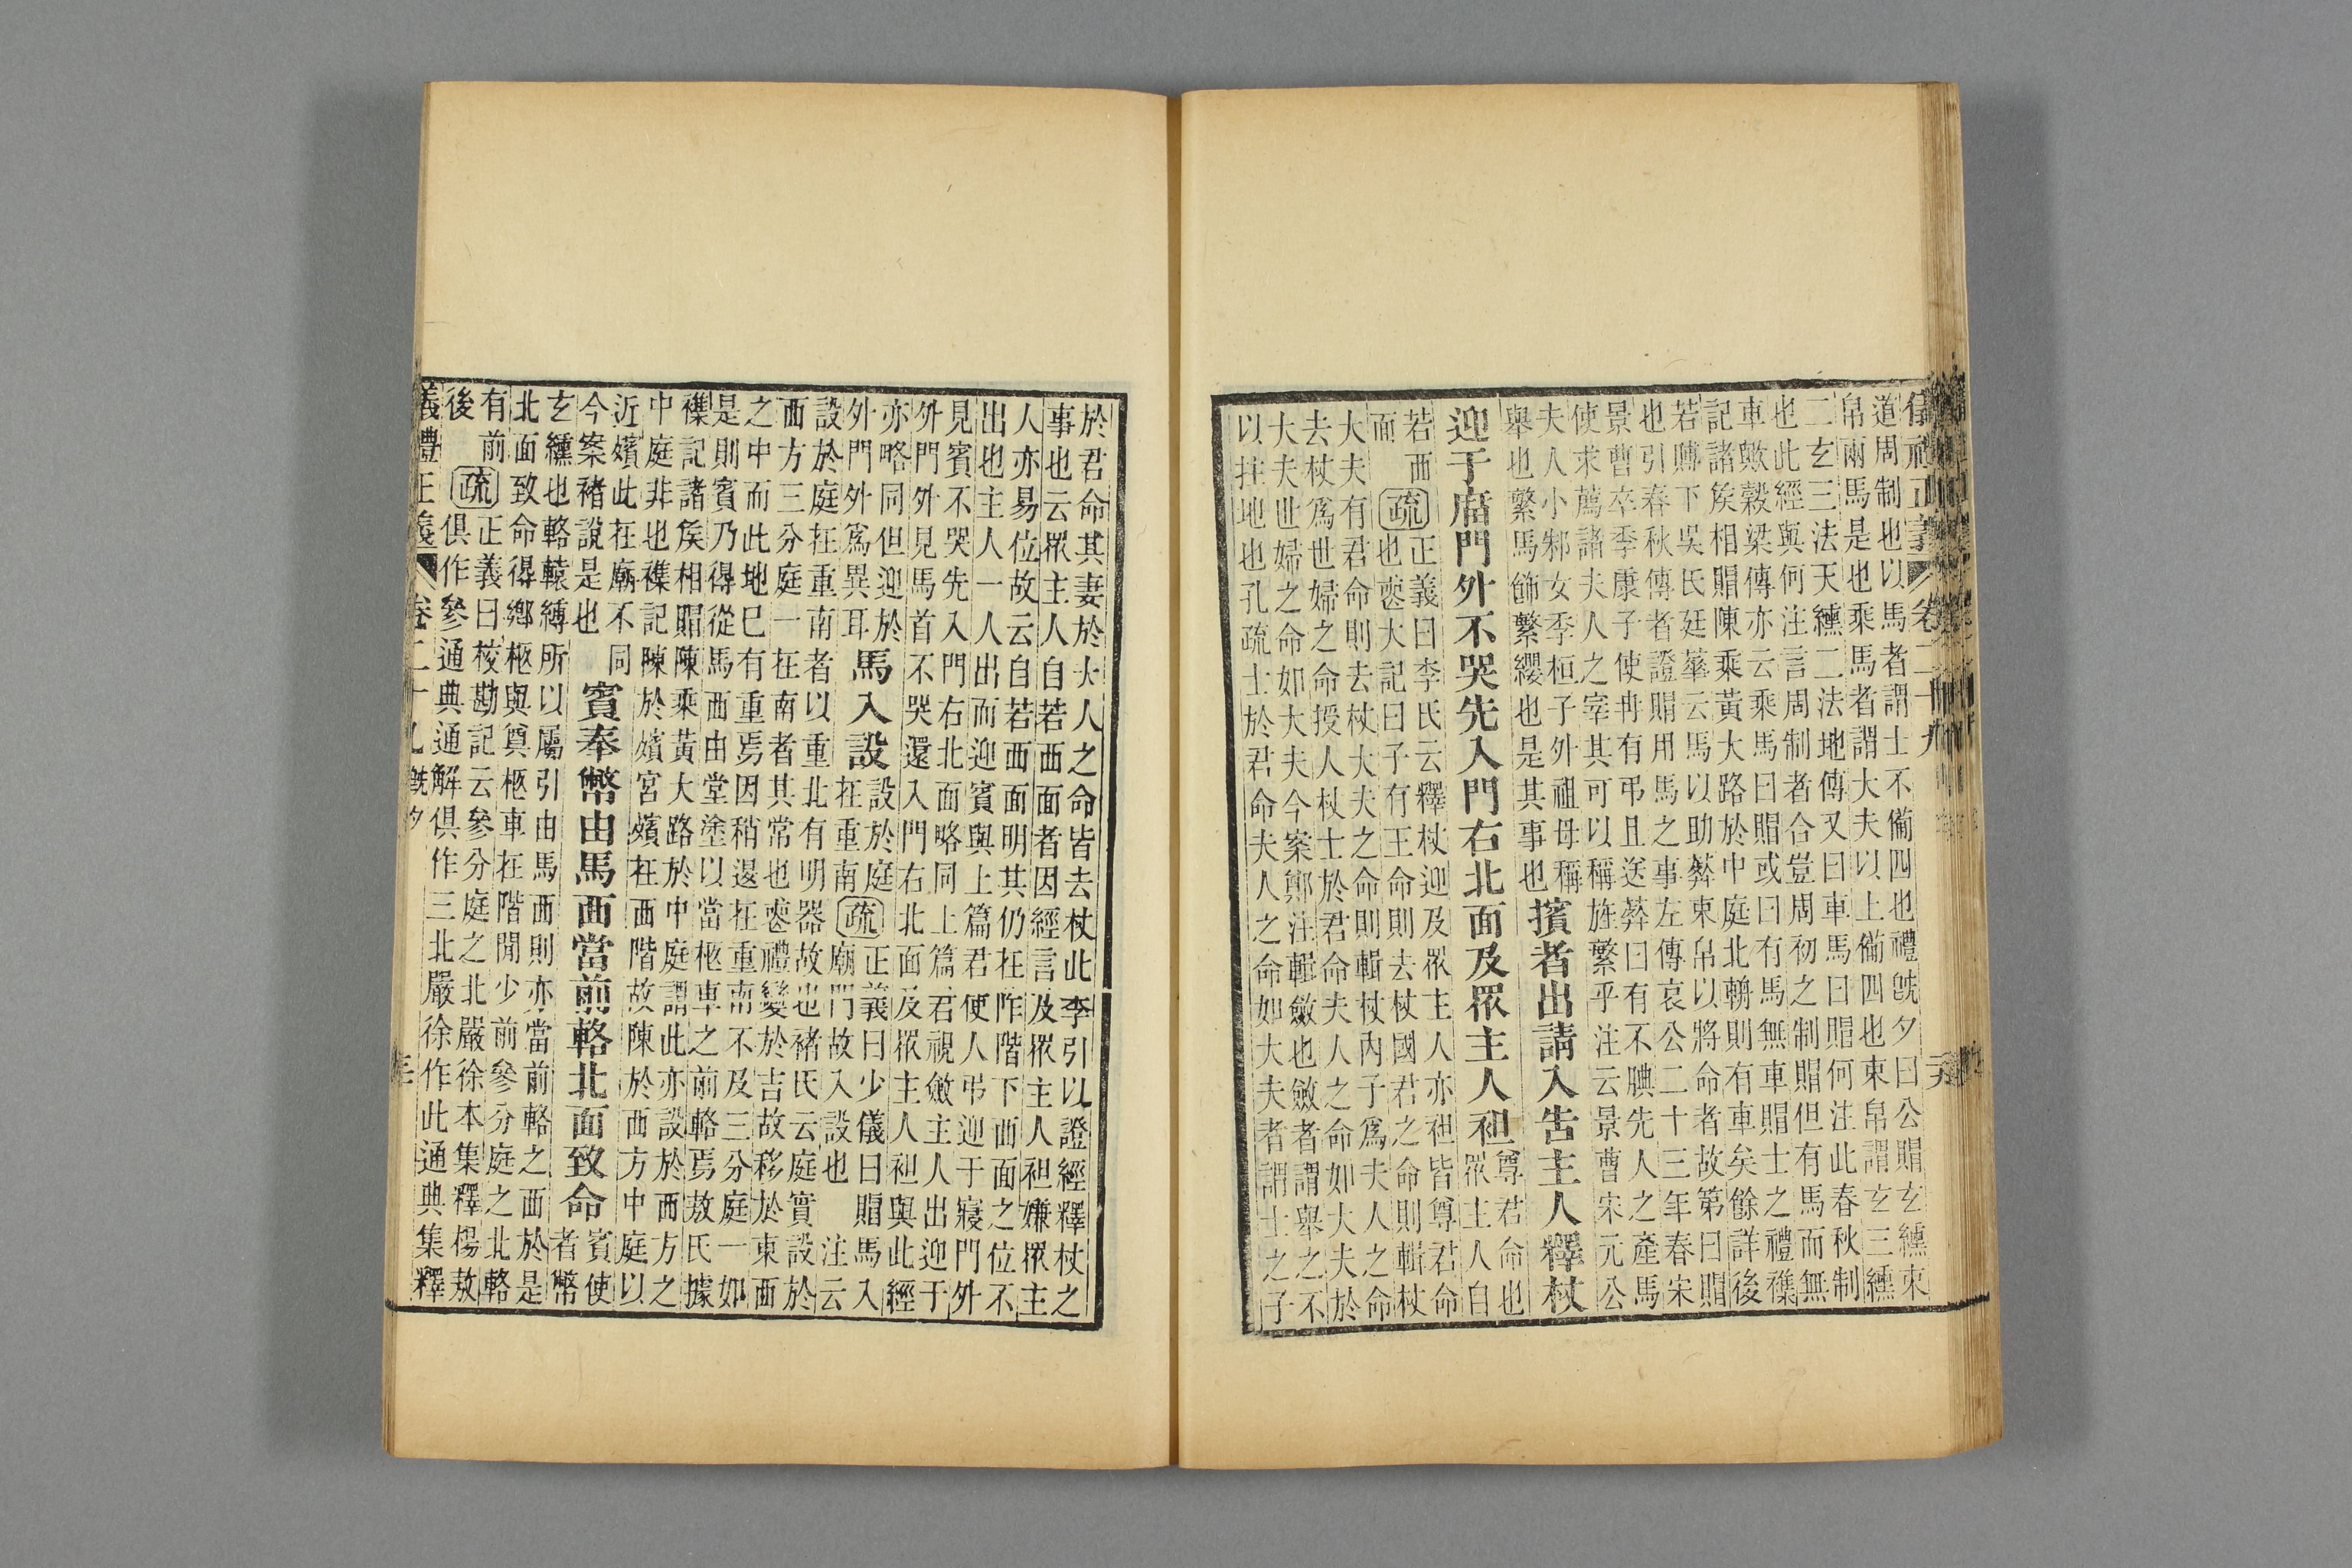 正義 卷二十九
道周制也以馬者謂士不備四也禮旣夕曰公賵玄纁束
帛兩馬是也乘馬者謂大夫以上備四也束帛謂玄三纁
二玄三法天纁二法地傳又曰車馬曰賵何注此春秋制
也此經與何注言周制者合豈周初之制賵但有馬而無
車歟穀梁傳亦云乘馬曰賵或曰有馬無車賵士之禮襍
記諸矦相賵陳乘黃大路於中庭北輈則有車矣餘詳後
若賻下吳氏廷華云馬以助葬束帛以將命者故第曰賵
也引春秋傳者證賵用馬之事左傳哀公二十三年春宋
景曹卒季康子使冉有弔且送葬曰有不腆先人之產馬
使求薦諸夫人之宰其可以稱旌繁乎注云景曹宋元公
夫人小邾女季桓子外祖母稱
舉也繁馬飾繁纓也是其事也
擯者出請入告主人釋杖
迎于庿門外不哭先入門右北面及眾主人袒
尊君命也
眾主人自
若西
面
疏
正義曰李氏云釋杖迎及眾主人亦袒皆尊君命
也喪大記曰子有王命則去杖國君之命則輯杖
大夫有君命則去杖大夫之命則輯杖內子爲夫人之命
去杖爲世婦之命授人杖士於君命夫人之命如大夫於
大夫世婦之命如大夫今案鄭注輯斂也斂者謂舉之不
以拄地也孔疏士於君命夫人之命如大夫者謂士之子
於君命其妻於夫人之命皆去杖此李引以證經釋杖之
事也云眾主人自若西面者因經言及眾主人袒嫌眾主
人亦易位故云自若西面明其仍在阼階下西面之位不
出也主人一人出而迎賓與上篇君使人弔迎于寢門外
見賓不哭先入門右北面略同上篇君視斂主人出迎于
外門外見馬首不哭還入門右北面及眾主人袒與此經
亦略同但迎於
外門外爲異耳
馬入設
設於庭
在重南
疏
正義曰少儀曰賵馬入
廟門故入設也 注云
設於庭在重南者以重北有明器故也褚氏云庭實設於
西方三分庭一在南者其常也喪禮變於吉故移於東西
之中而此地已有重焉因稍退在重南不及三分庭一如
是則賓乃得從馬西由堂塗以當柩車之前輅焉敖氏據
襍記諸矦相賵陳乘黃大路於中庭謂此亦設於西方之
中庭非也襍記陳於殯宮殯在西階故陳於西方中庭以
近殯此在廟不同
今案褚說是也
賓奉幣由馬西當前輅北面致命
賓使
者幣
玄纁也輅轅縛所以屬引由馬西則亦當前輅之西於是
北面致命得鄉柩與奠柩車在階閒少前參分庭之北輅
有前
後
疏
正義曰校勘記云參分庭之北嚴徐本集釋楊敖
俱作參通典通解俱作三北嚴徐作此通典集釋
儀禮正義 卷二十九 旣夕